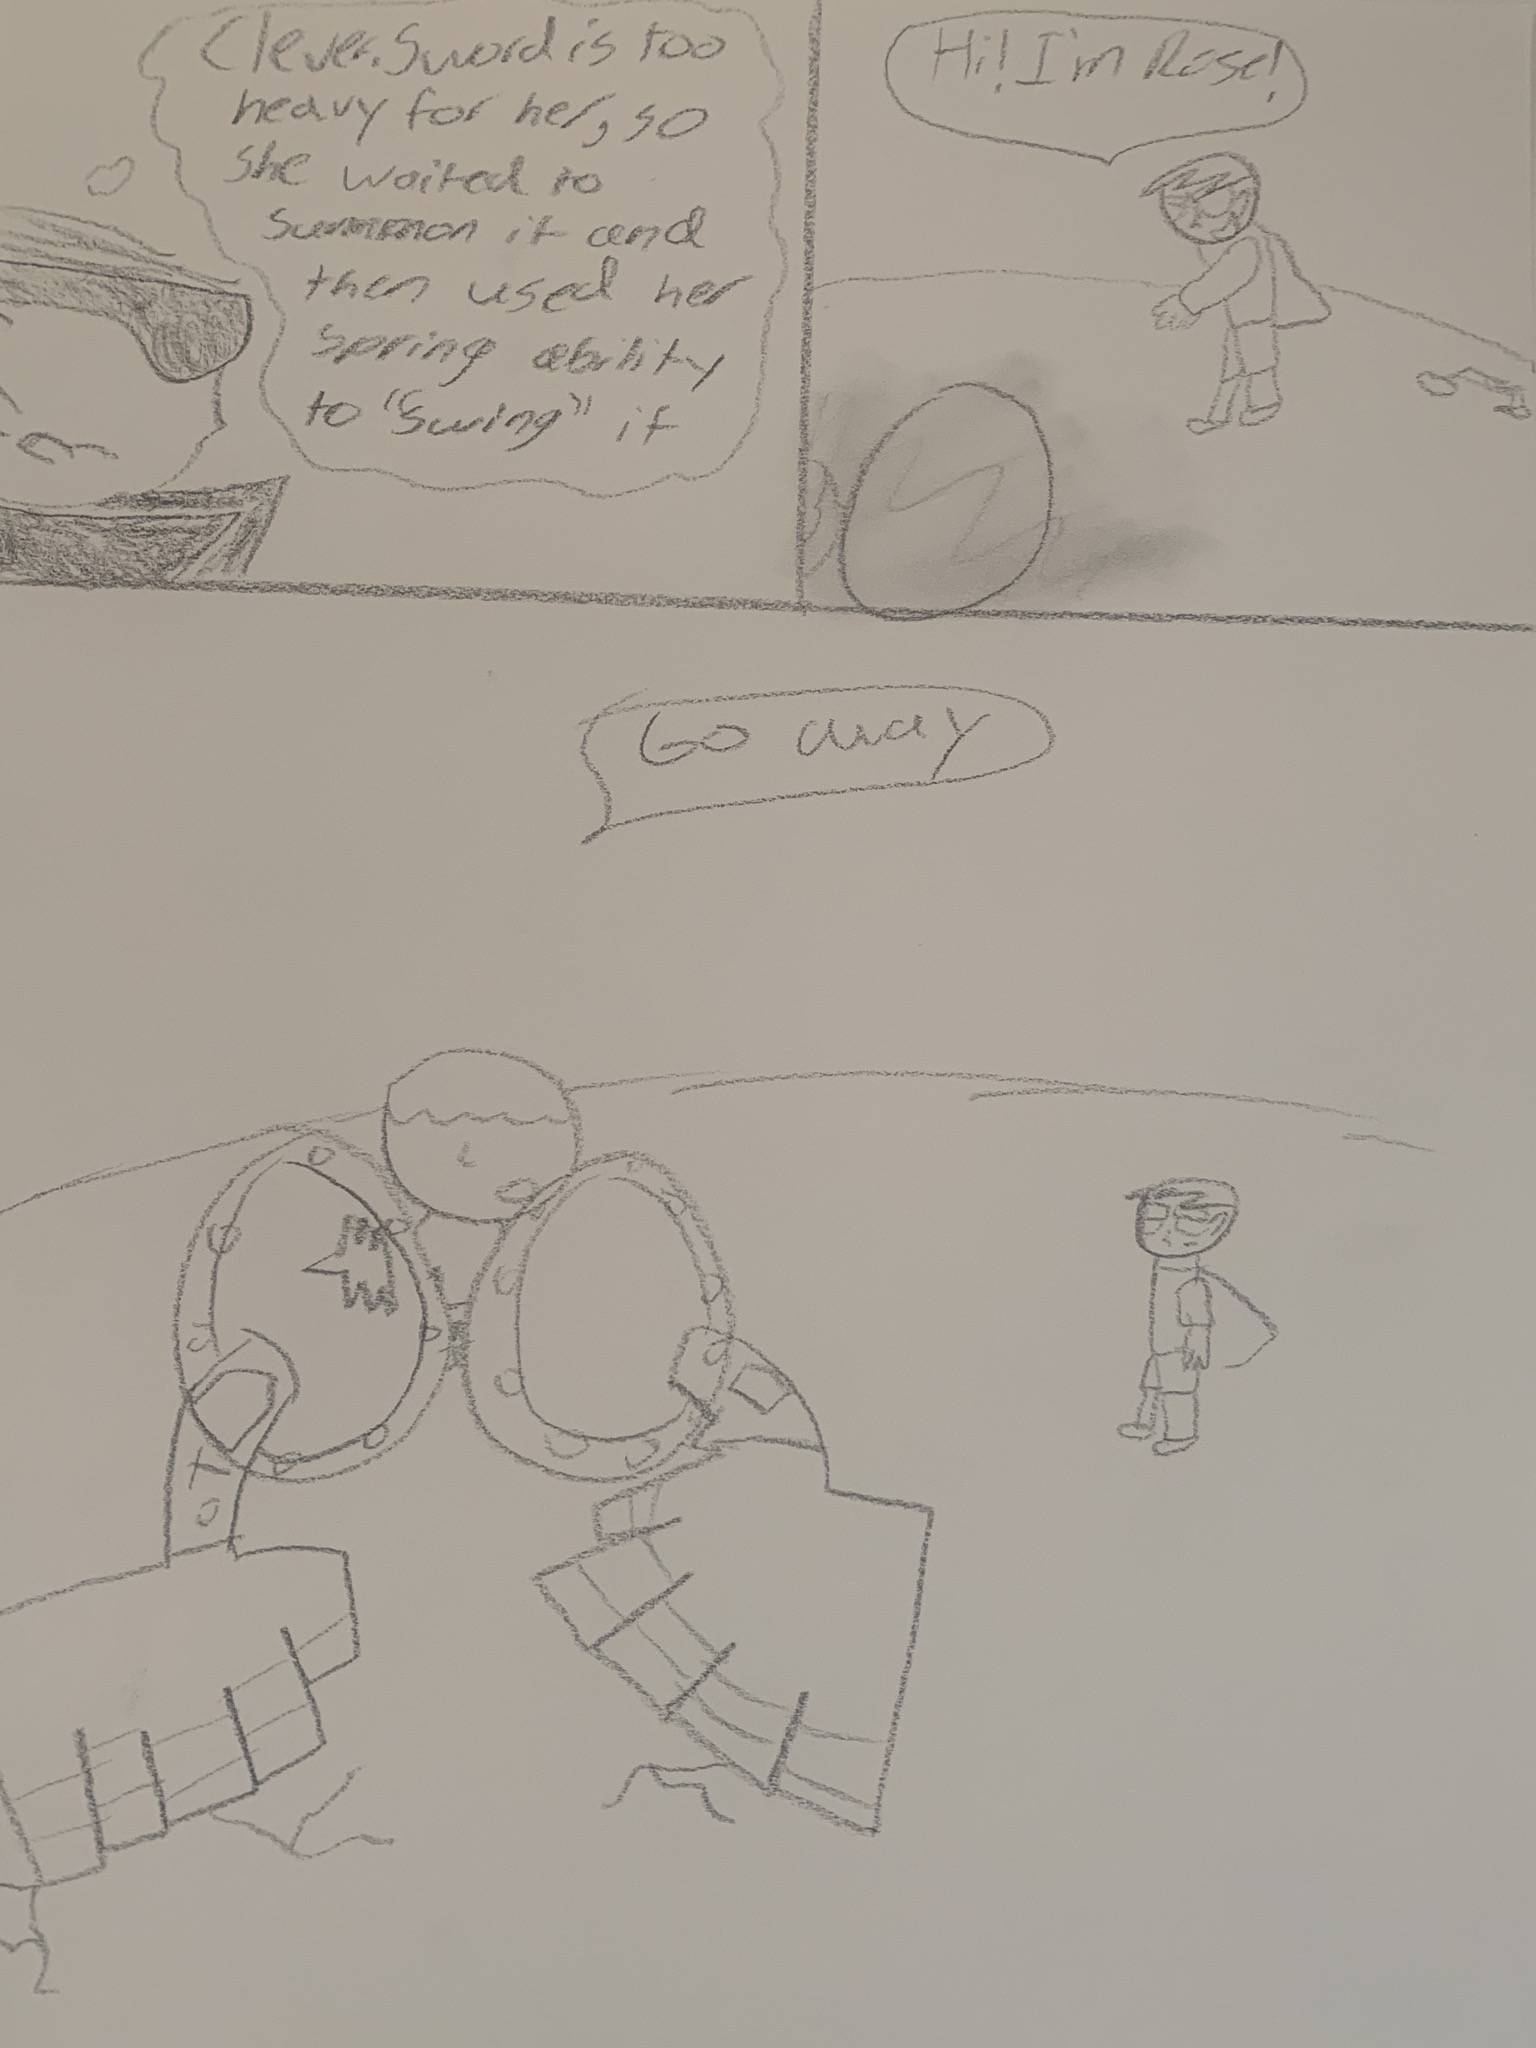 Clever. Sword is too
heavy for her, so
she waited to
summon it and
then used her
spring ability
to "Swing" it
Hi! I'm Rose!
Go away